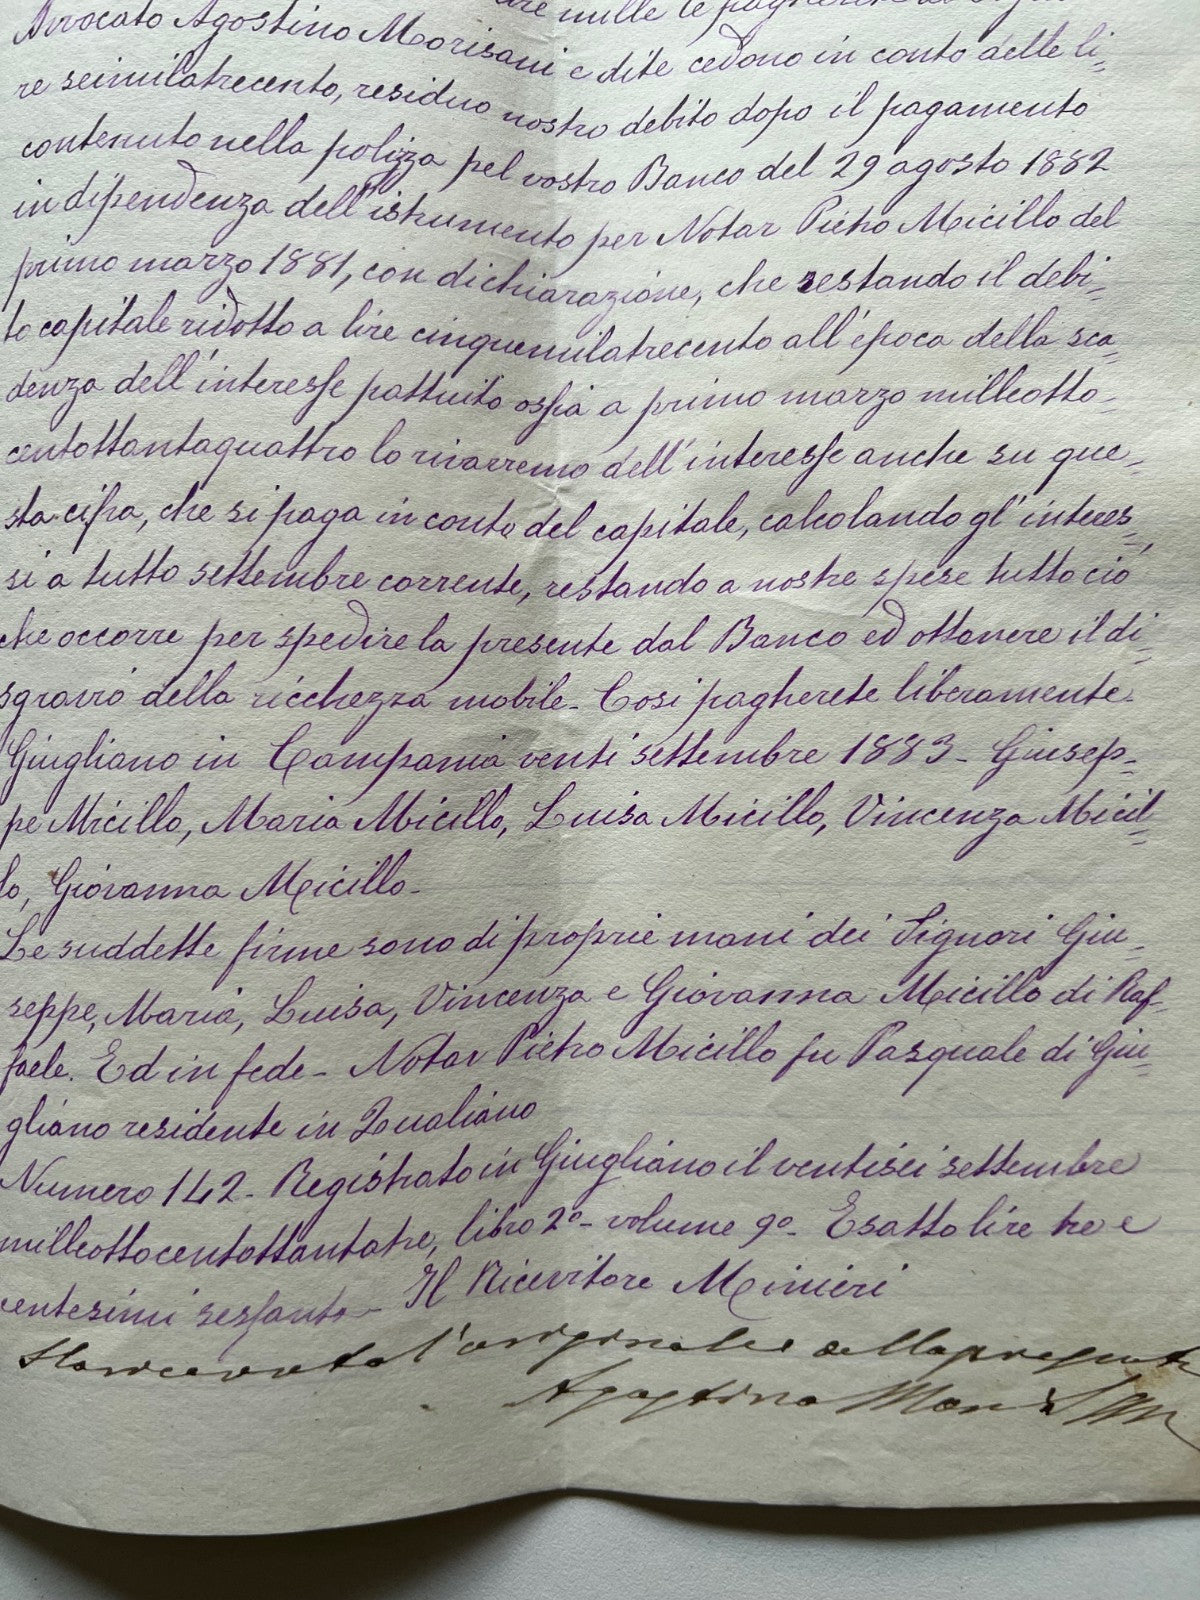 mille le pagherete
Avvocato Agostino Morisani e dite cedono in conto delle li=
re seimilatrecento, residuo nostro debito dopo il pagamento
contenuto nella polizza pel vostro Banco del 29 agosto 1882
in dipendenza dell'istrumento per Notar Pietro Micillo del
primo marzo 1881, con dichiarazione, che restando il debi=
to capitale ridotto a lire cinquemilatrecento all'epoca della sca=
denza dell'interesse pattuito ossia a primo marzo milleotto=
centottantaquattro lo rivarremo dell'interesse anche su que=
sta cifra, che si paga in conto del capitale, calcolando gl'interes=
si a tutto settembre corrente, restando a nostre spese tutto ciò
che occorre per spedire la presente dal Banco ed ottenere il di=
sgravio della ricchezza mobile. Così pagherete liberamente.
Giugliano in Campania venti settembre 1883. Giusep=
pe Micillo, Maria Micillo, Luisa Micillo, Vincenza Micil=
lo, Giovanna Micillo.
Le suddette firme sono di proprie mani dei Signori Giu=
seppe, Maria, Luisa, Vincenza e Giovanna Micillo di Raf=
faele. Ed in fede. Notar Pietro Micillo fu Pasquale di Giu=
gliano residente in Qualiano
Numero 142. Registrato in Giugliano il ventisei settembre
milleottocentottantatre, libro 2° volume 9°. Esatto lire tre e
centesimi sessanta. Il Ricevitore Minieri
Ho ricevuto l'originale della presente
Agostino Morisani